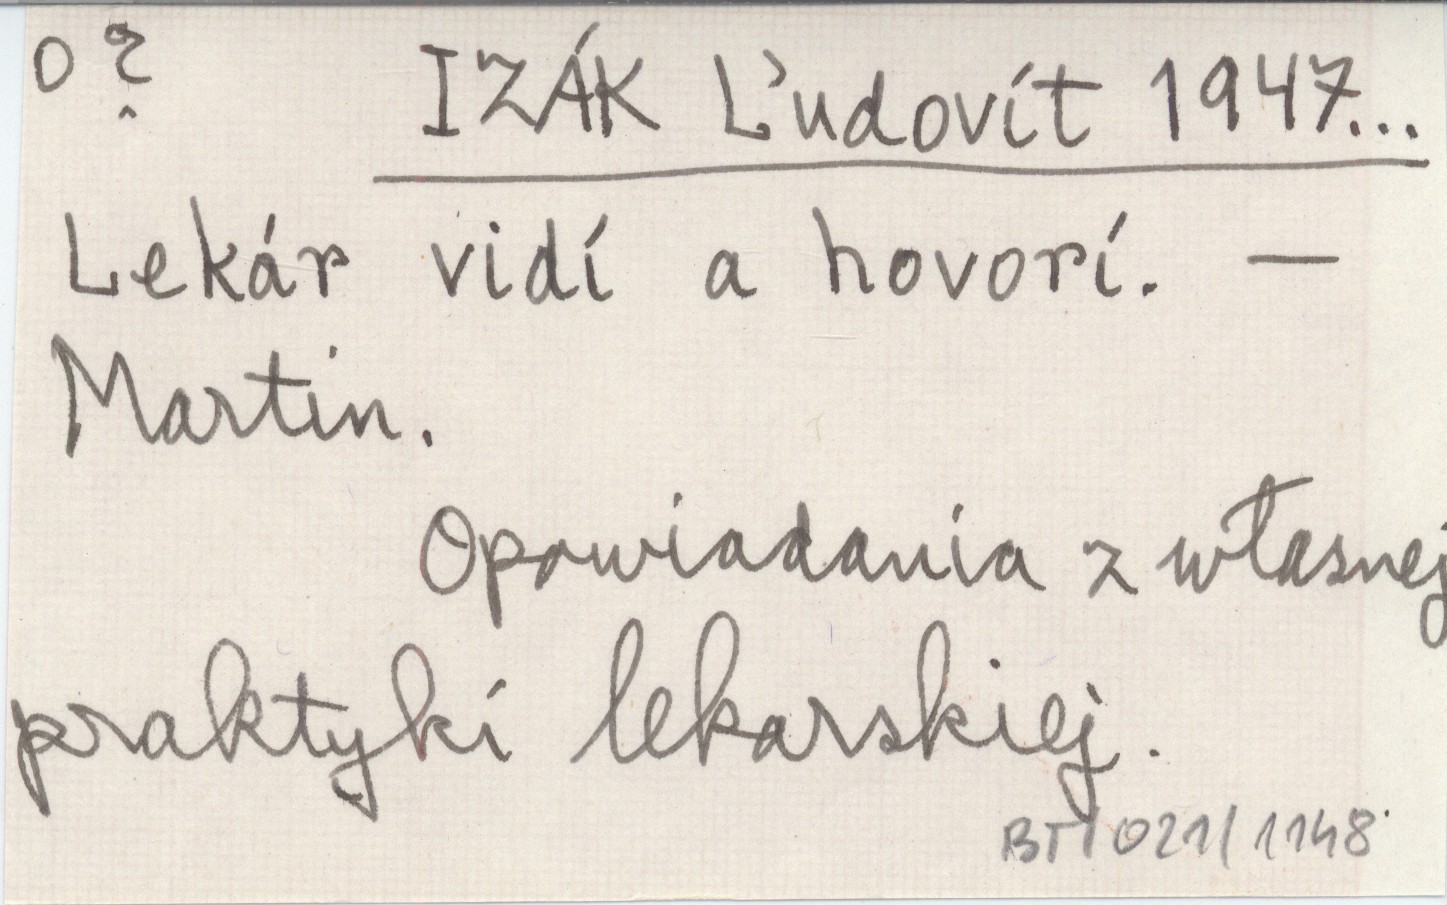 O ? IZÁK Ľudovít 1947...
Lekár vidí a hovorí. —
Martin.
Opowiadania z własnej
praktyki lekarskiej.
BT/021/1148